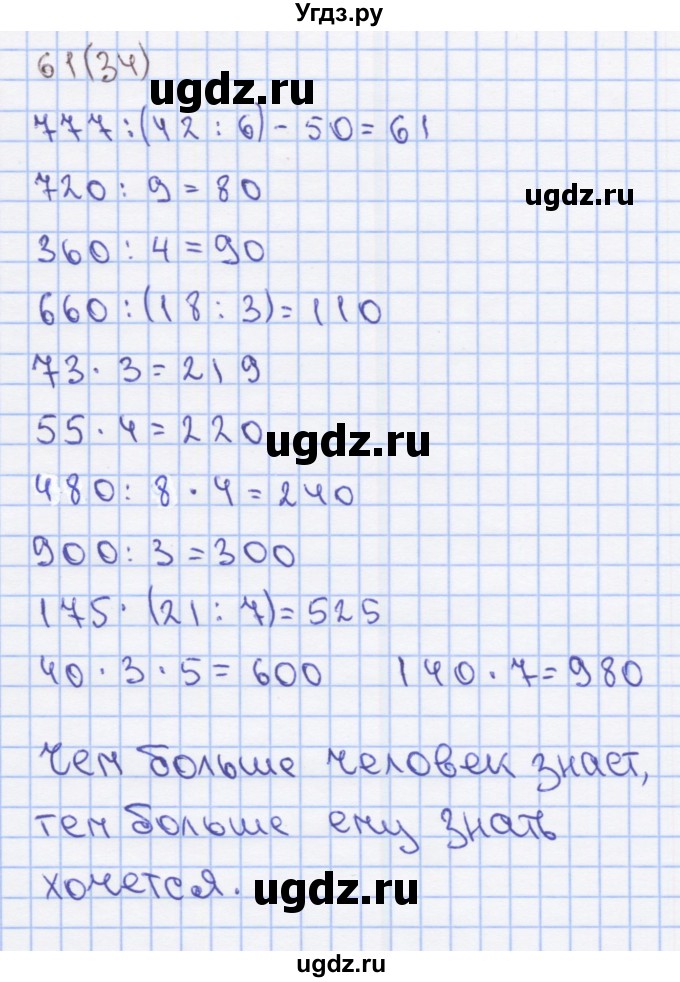 Угдз.ру
61(34)
ugdz.ru
777:(42:6)-50=61
720:9=80
ugdz.ru
360:4=90
660:(18:3)=110
73·3=219
55·4=220
ugdz.ru
480:8·4=240
900:3=300
175·(21:7)=525
40·3·5=600 140·7=980
Чем больше человек знает,
тем больше ему знать
хочется.
ugdz.ru
ugdz.ru